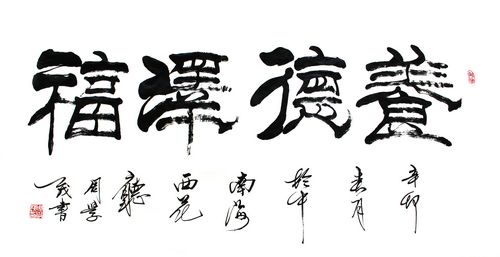 養德澤福
辛卯
春月
於中
南海
西花
廳
周學
書